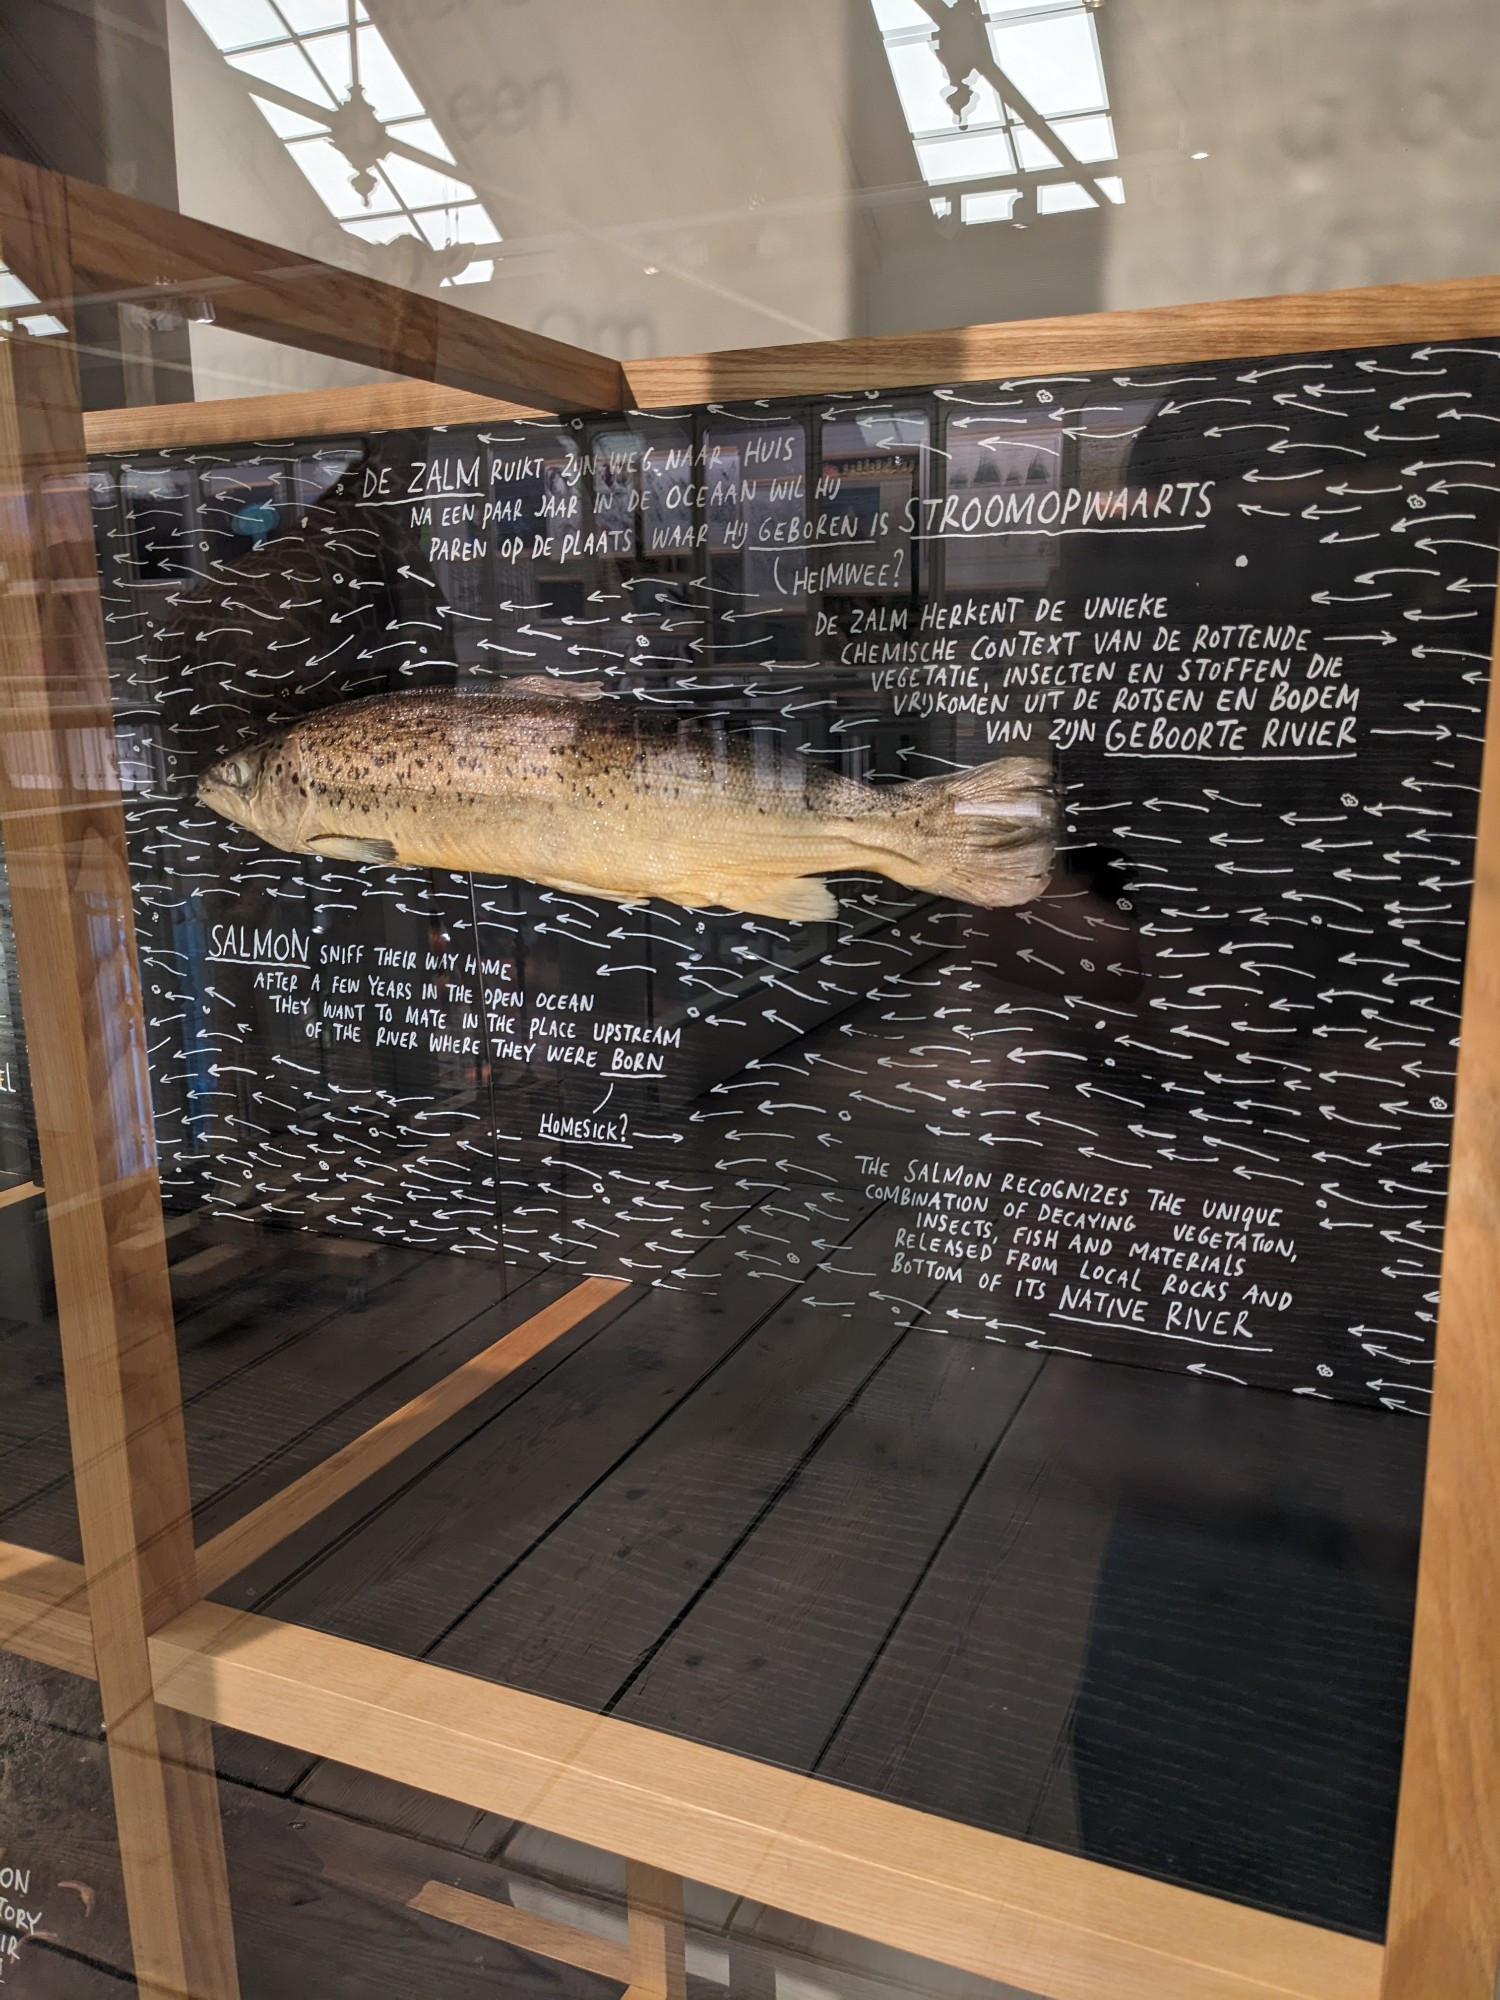 een
om
DE ZALM RUIKT ZIJN WEG NAAR HUIS
NA EEN PAAR JAAR IN DE OCEAAN WIL HIJ
PAREN OP DE PLAATS WAAR HIJ GEBOREN IS STROOMOPWAARTS
(HEIMWEE?
DE ZALM HERKENT DE UNIEKE
CHEMISCHE CONTEXT VAN DE ROTTENDE
VEGETATIE, INSECTEN EN STOFFEN DIE
VRIJKOMEN UIT DE ROTSEN EN BODEM
VAN ZIJN GEBOORTE RIVIER
SALMON SNIFF THEIR WAY HOME
AFTER A FEW YEARS IN THE OPEN OCEAN
THEY WANT TO MATE IN THE PLACE UPSTREAM
OF THE RIVER WHERE THEY WERE BORN
HOMESICK?
THE SALMON RECOGNIZES THE UNIQUE
COMBINATION OF DECAYING VEGETATION,
INSECTS, FISH AND MATERIALS
RELEASED FROM LOCAL ROCKS AND
BOTTOM OF ITS NATIVE RIVER
EL
ON
TORY
IR